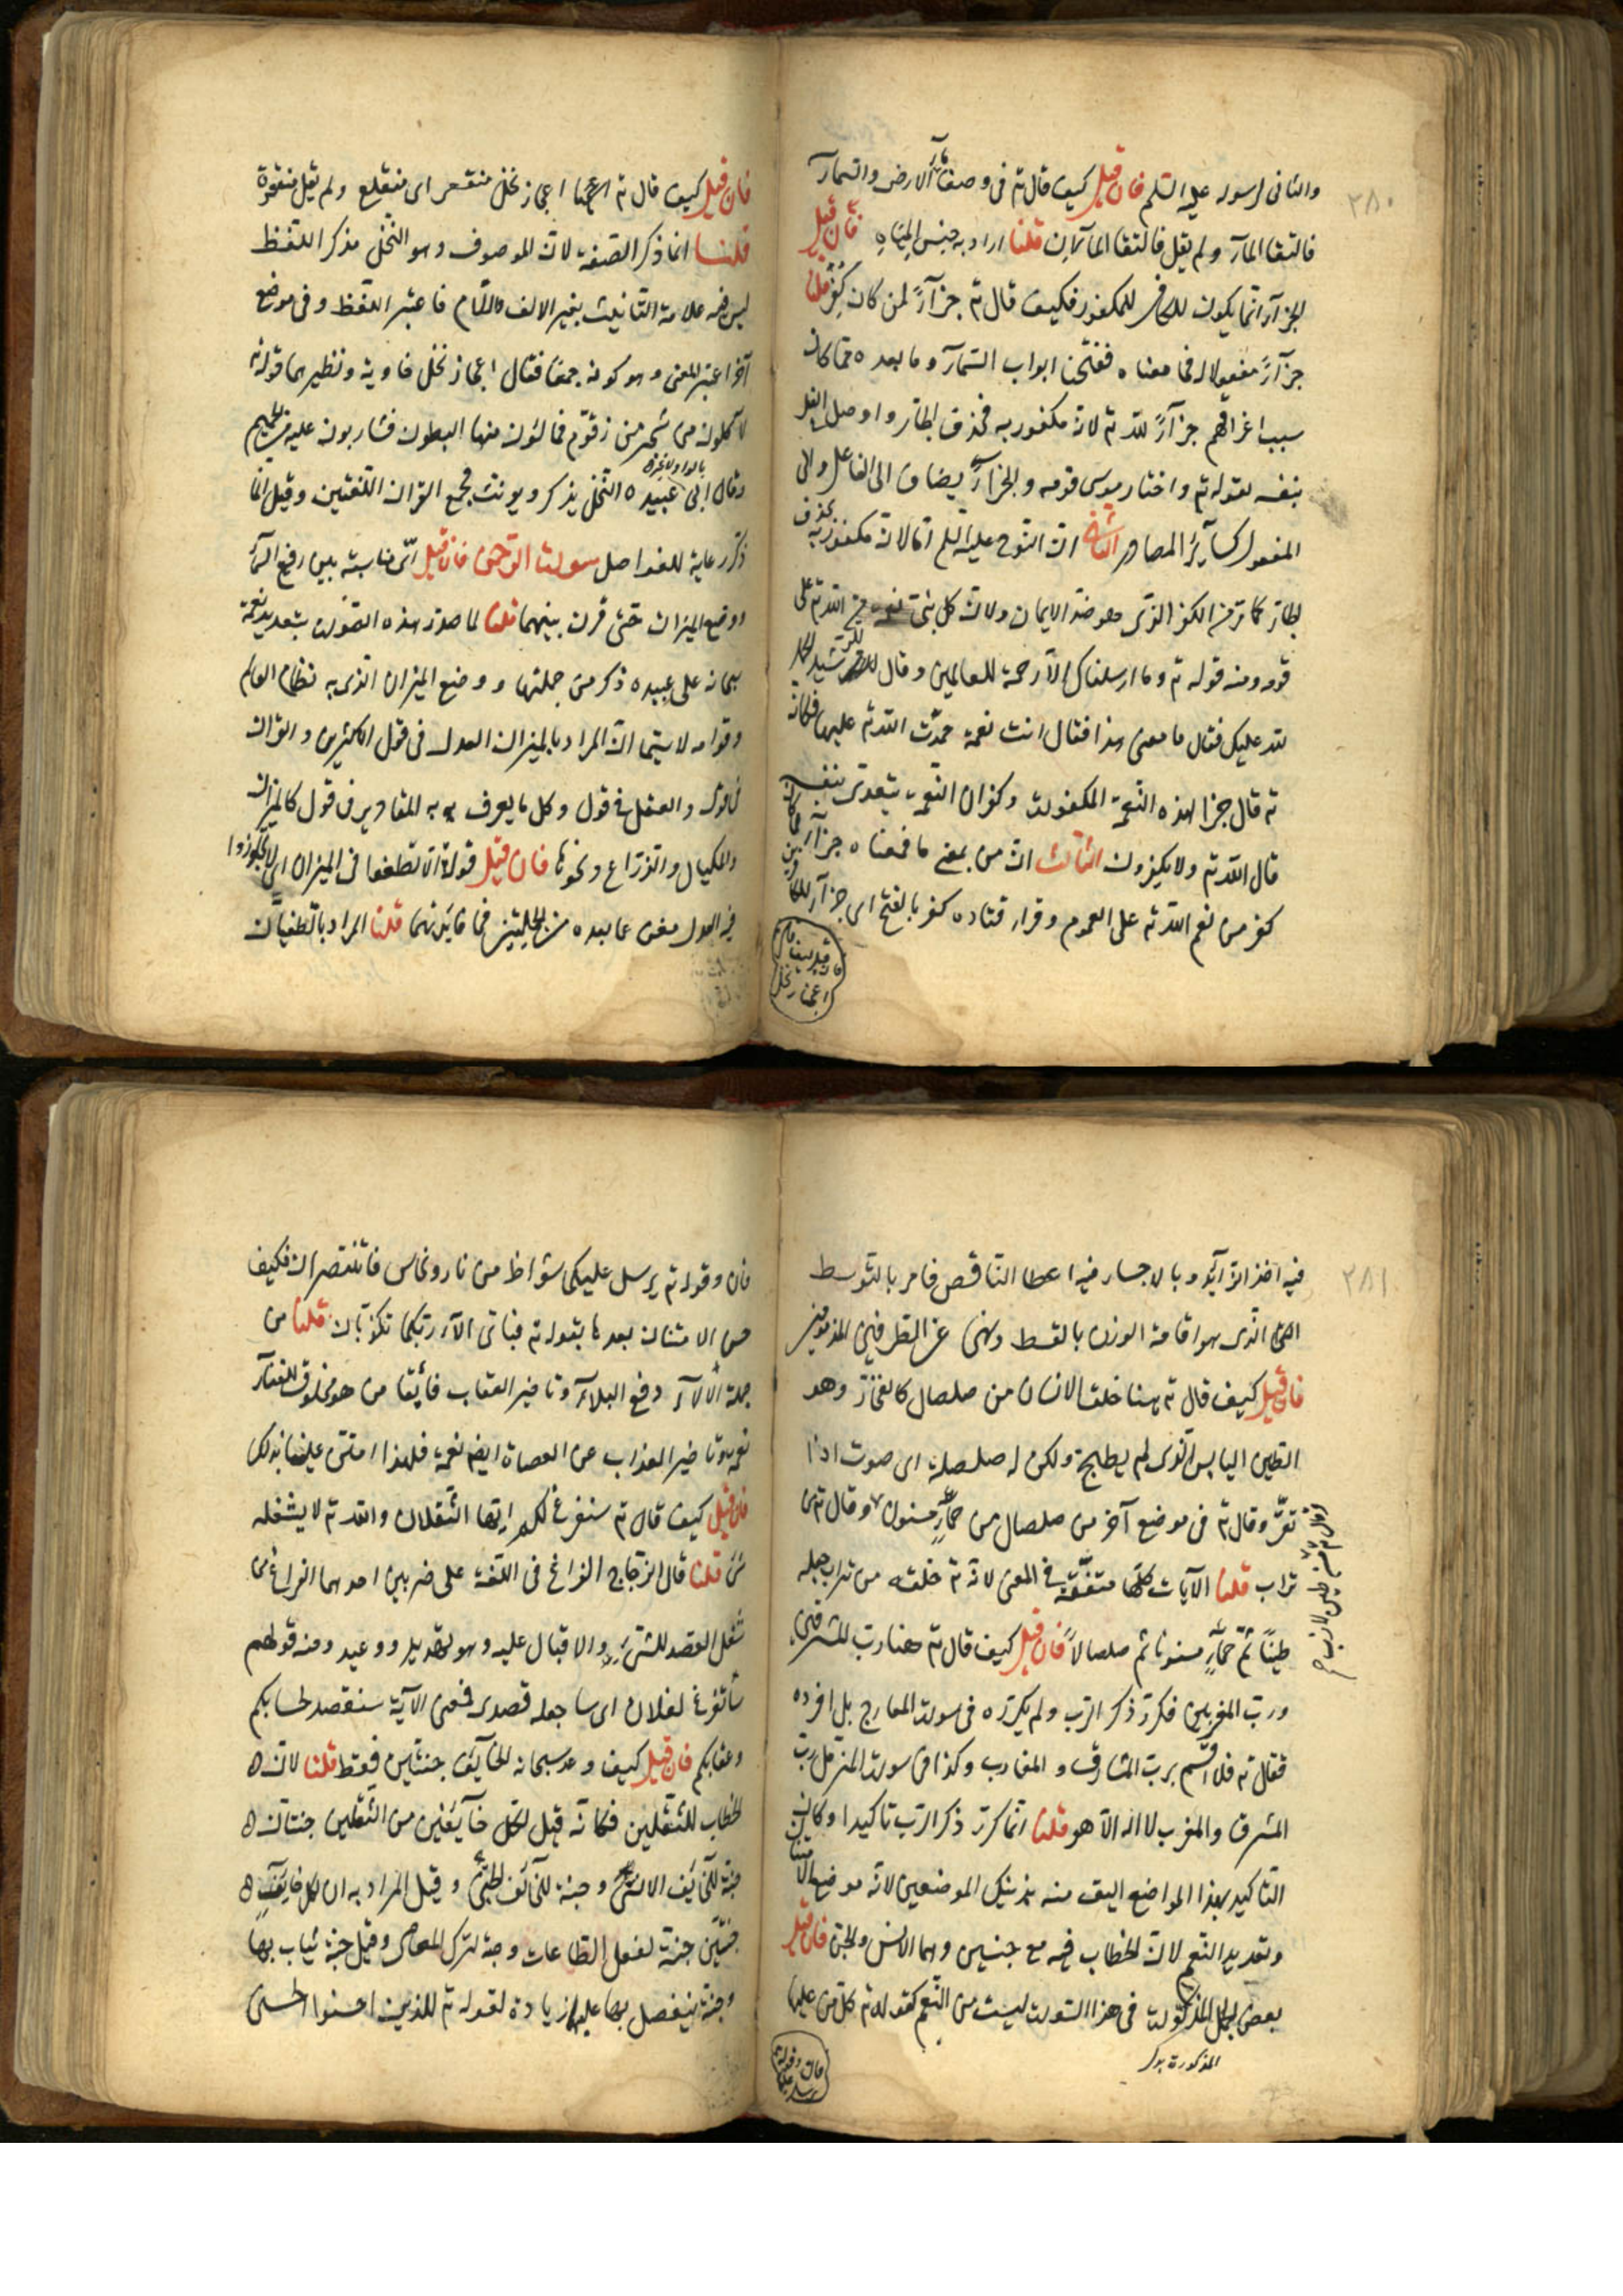 ٢٨٠
والثانى لرسوله عليه السلم فان قيل كيف قال تع فى وصف مآء الارض والسمآء
فالتقا المآء ولم يقل فالتقا المآان قلنا اراد به جنس المياه فان قيل
الجزآء انما يكون للكافر للمكفور فكيف قال تع جزآءً لمن كان كفر قلنا
جزآءً مفعول له فمعناه ففتحنا ابواب السمآء وما بعده مما كان
سبب اغراقهم جزآءً لله تع لانه مكفور به فحذف الجار واوصل الفعل
بنفسه لقوله تع واختار موسى قومه والجزآء يضاف الى الفاعل والى
المفعول كسآئر المصادر الثانى ان النوح عليه السلم اما لانه مكفور به بحذف
الجار كما مر من الكفر الذى هو ضد الايمان ولان كل نبى نعمة من الله تع على
قومه ومنه قوله تع وما ارسلناك الا رحمة للعالمين وقال للرشيد الحمد
لله عليك فقال ما معنى هذا فقال انت نعمة حمدت الله تع عليها فكانه
تع قال جزا لهذه النعمة المكفورة وكفران النعمة يتعدى بنفسه
قال الله تع ولا يكفرون الثالث ان من بمعنى ما فمعناه جزآء لما كان
كفر من نعم الله تع على العموم وقراء قتاده كفر بالفتح اى جزآء للكافرين
فان قيل كيف قال تع اعجاز نخل
فان قيل كيف قال تع اعجاز نخل منقعر اى منقلع ولم يقل منقعرة
قلنا انما ذكر الصفة لان الموصوف وهو النخل مذكر اللفظ
ليس فيه علامة التأنيث بغير الالف واللام فاعتبر اللفظ وفى موضع
آخر اعتبر المعنى وهو كونه جمعا فقال اعجاز نخل خاوية ونظيرهما قوله تع
لآكلون من شجر من زقوم فمالئون منها البطون فشاربون عليه من الحميم
وقال ابى عبيده النخل يذكر ويونث فجمع القران اللغتين وقيل انما
ذكر رعاية للفواصل سورة الرحمن فان قيل اى مناسبة بين رفع السمآء
ووضع الميزان حتى قرن بينهما قلنا لما صدر هذه السورة بتعديد نعمه
سبحانه على عبيده ذكر من جملتها ووضع الميزان الذى به نظام العالم
وقوامه لا سيما ان المراد بالميزان العدل فى قول الاكثرين والقران
فى قول والعقل فى قول وكل ما يعرف به المقادير فى قول كالميزان
والمكيال والذراع ونحوها فان قيل قوله ان لا تطغوا فى الميزان اى لا تجاوزوا
فيه العدل مغن عما بعده من الجملتين فما فائدتهما قلنا المراد بالطغيان
٢٨١
فيه اخذ الزآئد وبالاخسار فيه اعطا الناقص فامر بالتوسط
الذى هو اقامة الوزن بالقسط ونهى عن الطرفين المذمومين
فان قيل كيف قال تع هنا خلق الانسان من صلصال كالفخار وهو
الطين اليابس الذى لم يطبخ ولكن له صلصلة اى صوت اذا
نقر وقال تع فى موضع آخر من صلصال من حمإٍ مسنون وقال تع من
وقال تع من طين لازب
تراب قلنا الآيات كلها متفقة فى المعنى لانه تع خلقه من تراب جعله
طينًا ثم حمإٍ مسنونا ثم صلصالاً فان قيل كيف قال تع هنا رب المشرقين
ورب المغربين فكرر ذكر الرب ولم يكرره فى سورة المعارج بل افرده
فقال تع فلا اقسم برب المشارق والمغارب وكذا فى سورة المزمل رب
المشرق والمغرب لا اله الا هو قلنا انما كرر ذكر الرب تاكيدا وكان
التاكيد بهذا المواضع اليق منه بذينك الموضعين لانه موضع الامتنان
وتعديد النعم لان الخطاب فيه مع جنسين وهما الانس والجن فان قيل
بعض الجمل المذكورة فى هذا السورة ليست من النعم كقوله تع كل من عليها
المذكورة بدل
فان وقوله تع يرسل عليكما
فان وقوله تع يرسل عليكما شواظ من نار ونحاس فلا تنتصران فكيف
حسن الامتنان بعدها بقوله تع فباى آلاء ربكما تكذبان قلنا من
جملة الآلآء دفع البلآء وتاخير العقاب فابقا من هو مخلوق للفنآء
نعمة وتاخير العذاب عن العصاة ايضا نعمة فلهذا امتن علينا بذلك
فان قيل كيف قال تع سنفرغ لكم ايها الثقلان والله تع لا يشغله
شئ قلنا قال الزجاج الفراغ فى اللغة على ضربين احدهما الفراغ من
شغل القصد للشئ والاقبال عليه وهو تهديد ووعيد ومنه قولهم
سأتفرغ لفلان اى ساجعله قصدى فمعنى الآية سنقصد لحسابكم
وعقابكم فان قيل كيف وعد سبحانه للخآئف جنتين فقط قلنا لان
الخطاب للثقلين فكانه قيل لكل خآئفين من الثقلين جنتان
جنة للخآئف الانسى وجنة للخآئف الجنى وقيل المراد به ان لكل خايف
جنتين جنة لفعل الطاعات وجنة لترك المعاصى وقيل جنة يثاب بها
وجنة يتفضل بها عليه زيادة لقوله تع للذين احسنوا الحسنى